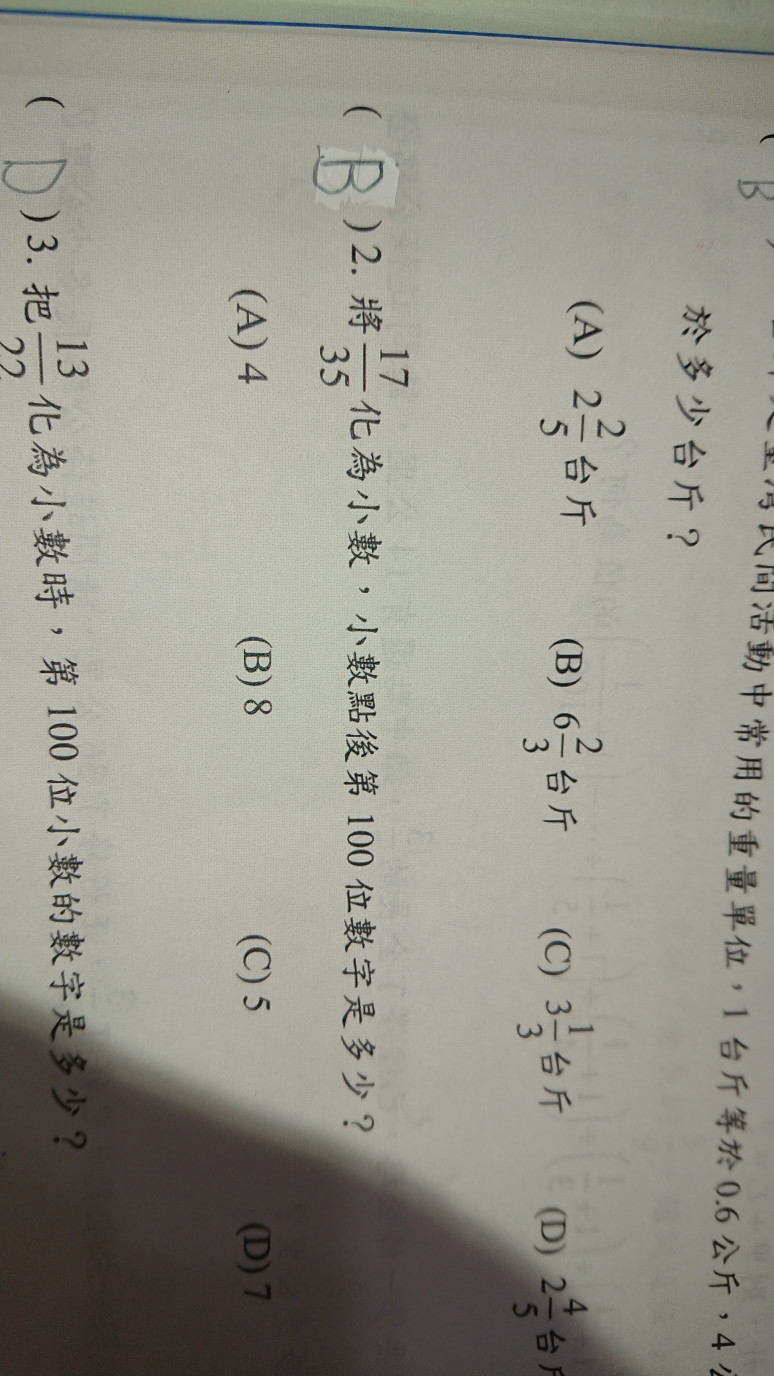 民間活動中常用的重量單位，1台斤等於0.6公斤，4
於多少台斤？
(A) 2 2/5 台斤 (B) 6 2/3 台斤 (C) 3 1/3 台斤 (D) 2 4/5 台
( B )2. 將 17/35 化為小數，小數點後第100位數字是多少？
(A) 4 (B) 8 (C) 5 (D) 7
( D )3. 把 13/22 化為小數時，第100位小數的數字是多少？